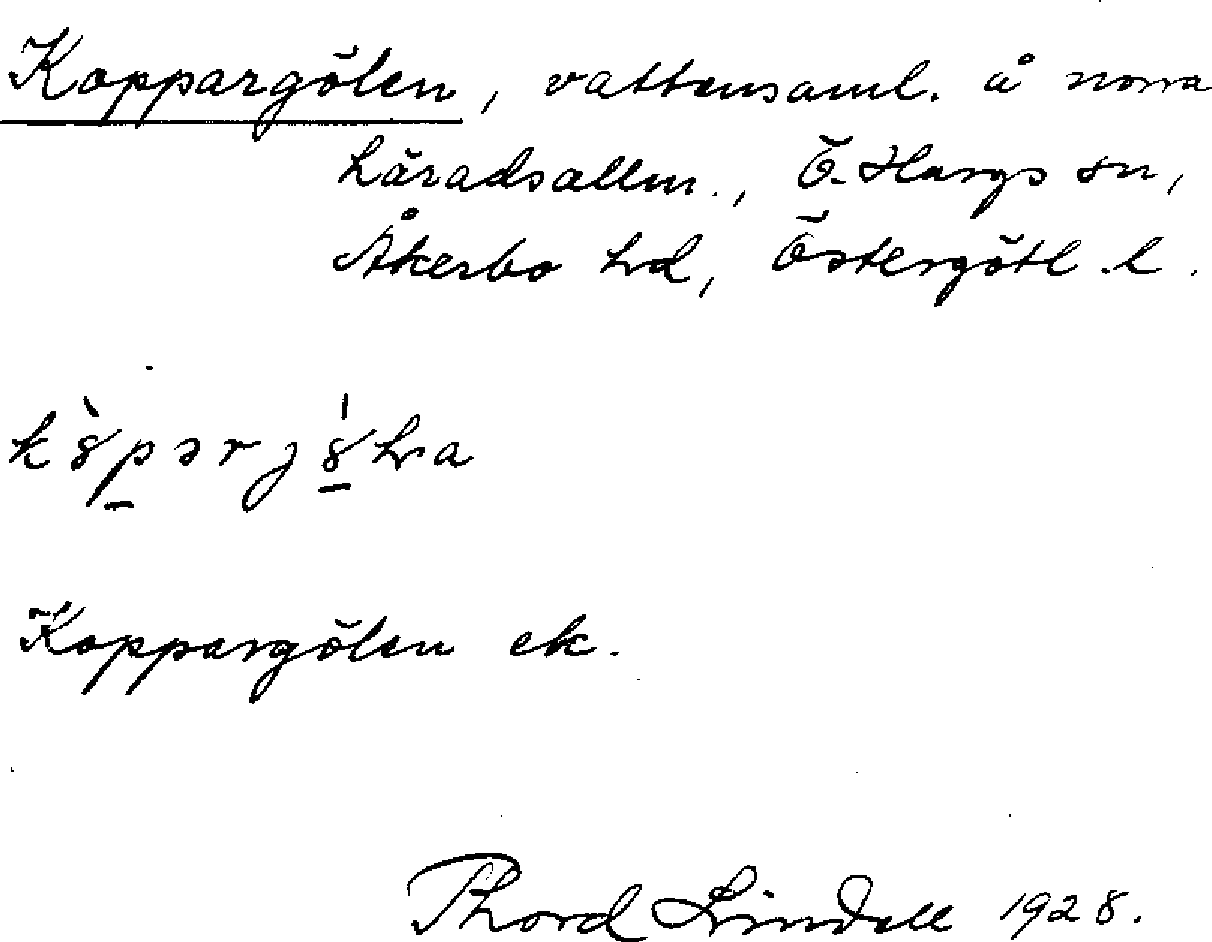 Koppargölen, vattensaml. å norra
häradsallm., Ö. Hargs sn,
Åkerbo hrd, Östergötl. l.
Koppargölen ek.
Thord Lindell 1928.